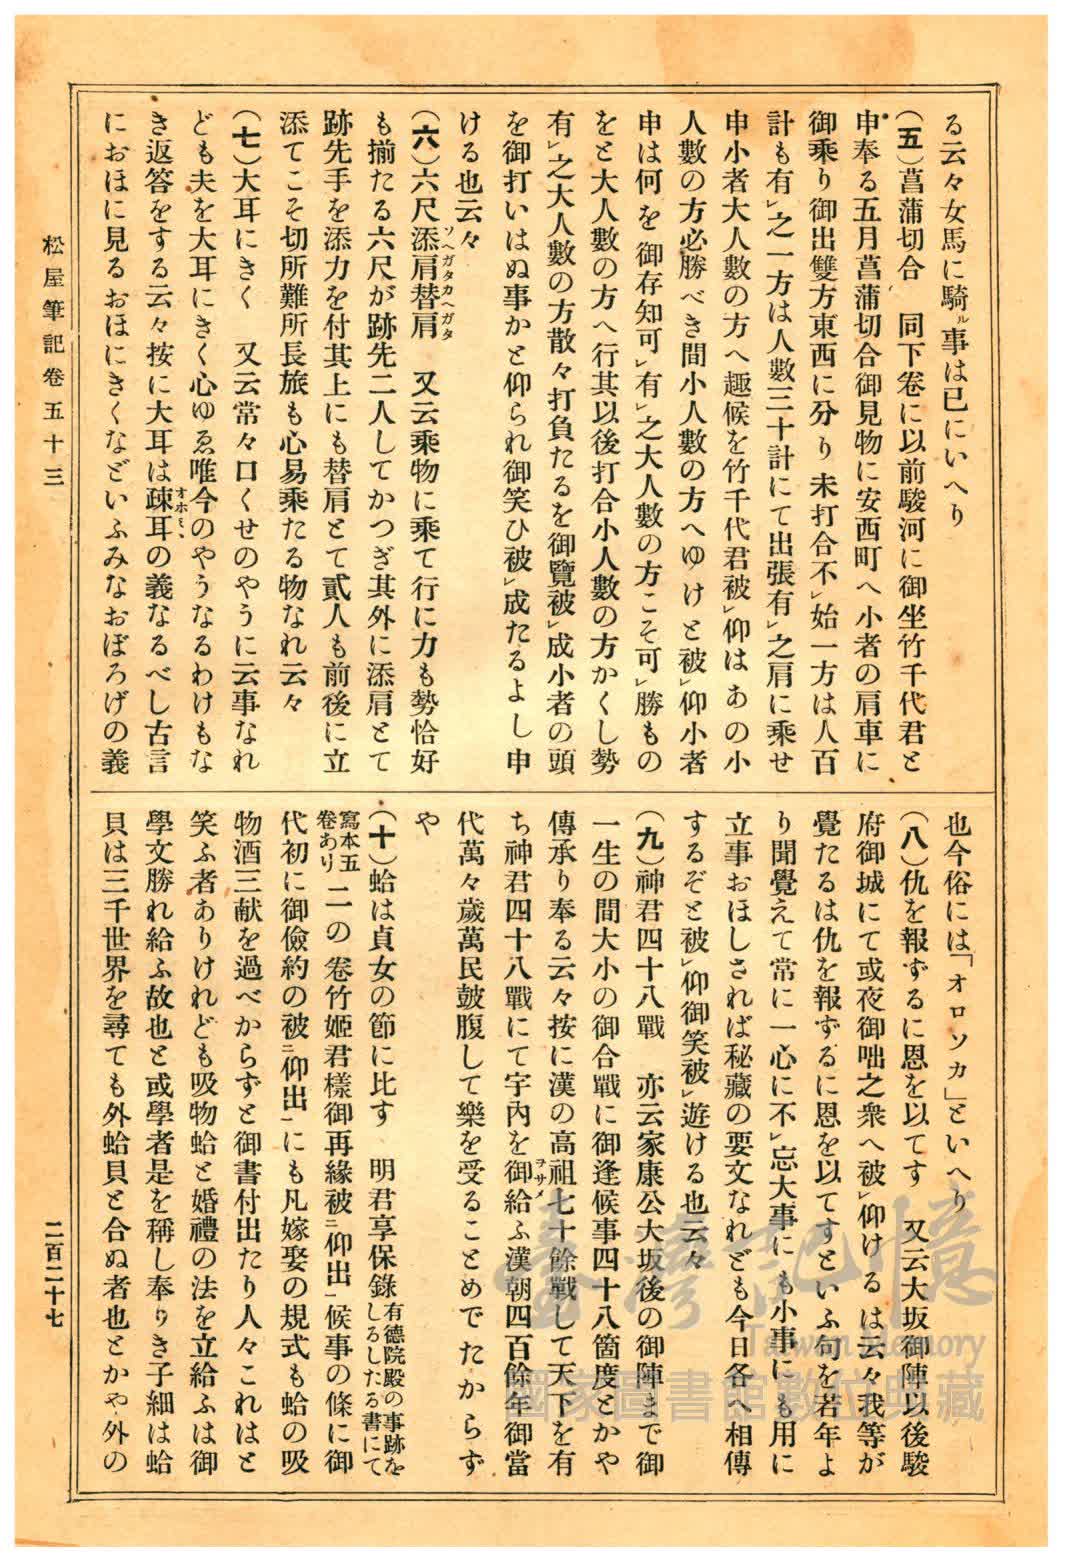 る云々女馬に騎ル事は已にいへり
（五）菖蒲切合　同下卷に以前駿河に御坐竹千代君と
申奉る五月菖蒲切合御見物に安西町へ小者の肩車に
御乘り御出雙方東西に分り未打合不レ始一方は人百
計も有レ之一方は人數三十計にて出張有レ之肩に乘せ
申小者大人數の方へ趣候を竹千代君被レ仰はあの小
人數の方必勝べき間小人數の方へゆけと被レ仰小者
申は何を御存知可レ有レ之大人數の方こそ可レ勝もの
をと大人數の方へ行其以後打合小人數の方かくし勢
有レ之大人數の方散々打負たるを御覽被レ成小者の頭
を御打いはぬ事かと仰られ御笑ひ被レ成たるよし申
ける也云々
（六）六尺添肩替肩　又云乘物に乘て行に力も勢恰好
ソヘガタカヘガタ
も揃たる六尺が跡先二人してかつぎ其外に添肩とて
跡先手を添力を付其上にも替肩とて貳人も前後に立
添てこそ切所難所長旅も心易乘たる物なれ云々
（七）大耳にきく　又云常々口くせのやうに云事なれ
ども夫を大耳にきく心ゆゑ唯今のやうなるわけもな
き返答をする云々按に大耳は疎耳の義なるべし古言
におほに見るおほにきくなどいふみなおぼろげの義
也今俗には「オロソカ」といへり
（八）仇を報ずるに恩を以てす　又云大坂御陣以後駿
府御城にて或夜御咄之衆へ被レ仰けるは云々我等が
覺たるは仇を報ずるに恩を以てすといふ句を若年よ
り聞覺えて常に一心に不レ忘大事にも小事にも用に
立事おほしされば秘藏の要文なれども今日各へ相傳
するぞと被レ仰御笑被レ遊ける也云々
（九）神君四十八戰　亦云家康公大坂後の御陣まで御
一生の間大小の御合戰に御逢候事四十八箇度とかや
傳承り奉る云々按に漢の高祖七十餘戰して天下を有
ち神君四十八戰にて宇内を御給ふ漢朝四百餘年御當
ヲサメ
代萬々歲萬民鼓腹して樂を受ることめでたからず
や
（十）蛤は貞女の節に比す　明君享保錄有德院殿の事跡をしるしたる書にて
寫本五卷あり二の卷竹姬君樣御再緣被二仰出一候事の條に御
代初に御儉約の被二仰出一にも凡嫁娶の規式も蛤の吸
物酒三献を過べからずと御書付出たり人々これはと
笑ふ者ありけれども吸物蛤と婚禮の法を立給ふは御
學文勝れ給ふ故也と或學者是を稱し奉りき子細は蛤
貝は三千世界を尋ても外蛤貝と合ぬ者也とかや外の
松屋筆記卷五十三
二百二十七
臺灣記憶
Taiwan Memory
國家圖書館數位典藏